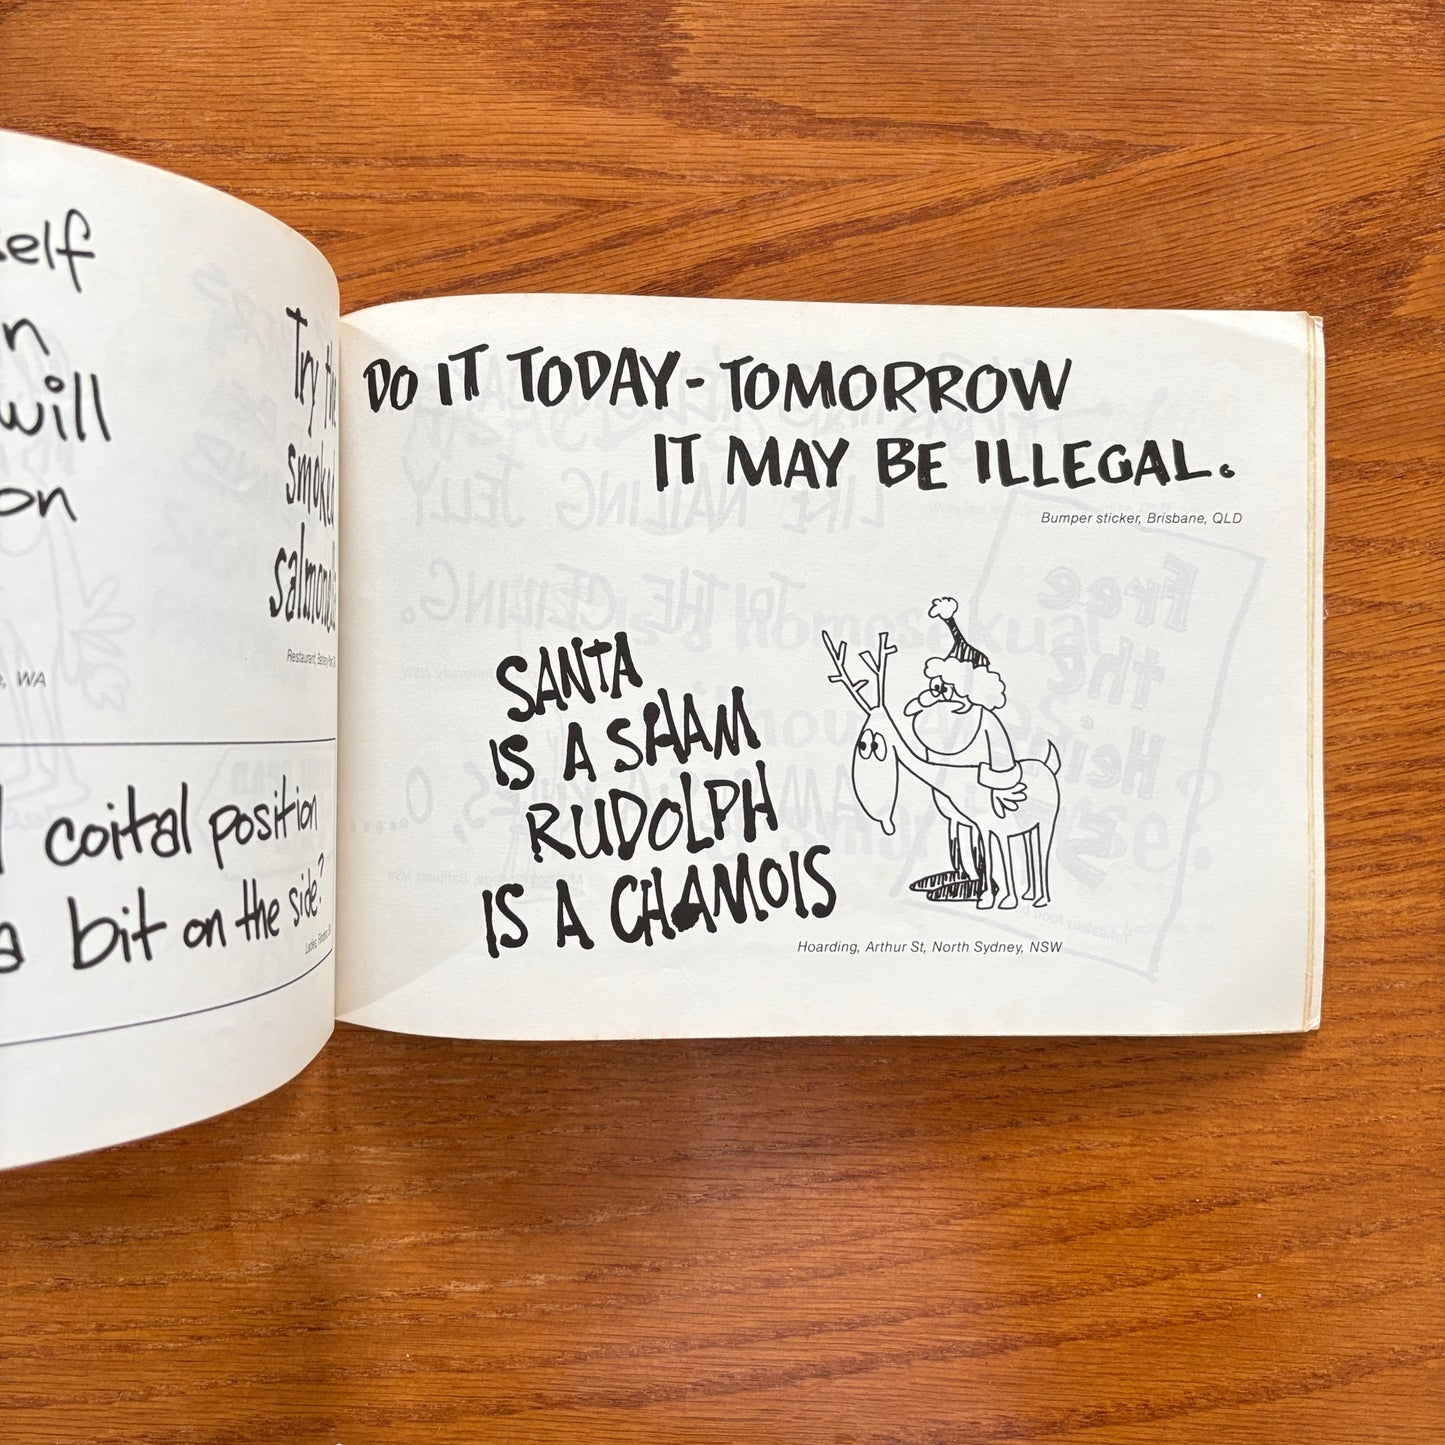 self
n
will
on
WA
Try the
smoked
coital position
a bit on the side?
DO IT TODAY - TOMORROW
IT MAY BE ILLEGAL.
Bumper sticker, Brisbane, QLD
SANTA
IS A SHAM
RUDOLPH
IS A CHAMOIS
Hoarding, Arthur St, North Sydney, NSW